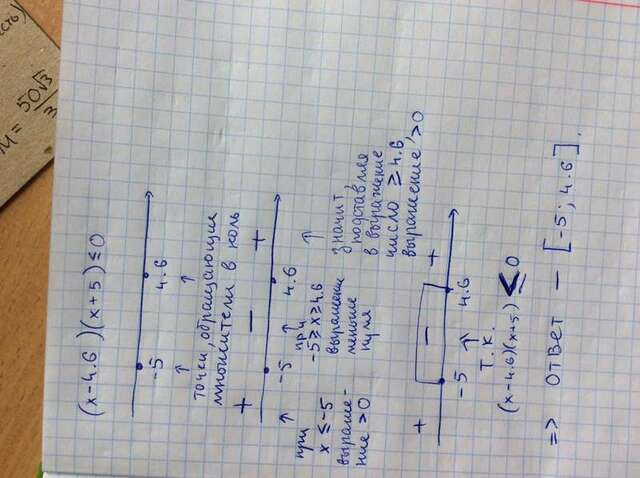 есть)
M = 50√3/3
(x-4.6)(x+5) ≤ 0
-5 4.6
↑ ↑
точки, обращающие
множители в ноль
+ — +
-5 4.6
↑ ↑ ↑
при
x ≤ -5
выраже-
ние > 0
при
-5 ≥ x ≥ 4.6
выражение
меньше
нуля
значит,
подставляя
в выражение
число ≥ 4.6,
выражение > 0
+ — +
-5 ↑ 4.6
т.к.
(x-4.6)(x+5) ≤ 0
=> ответ — [-5; 4.6].